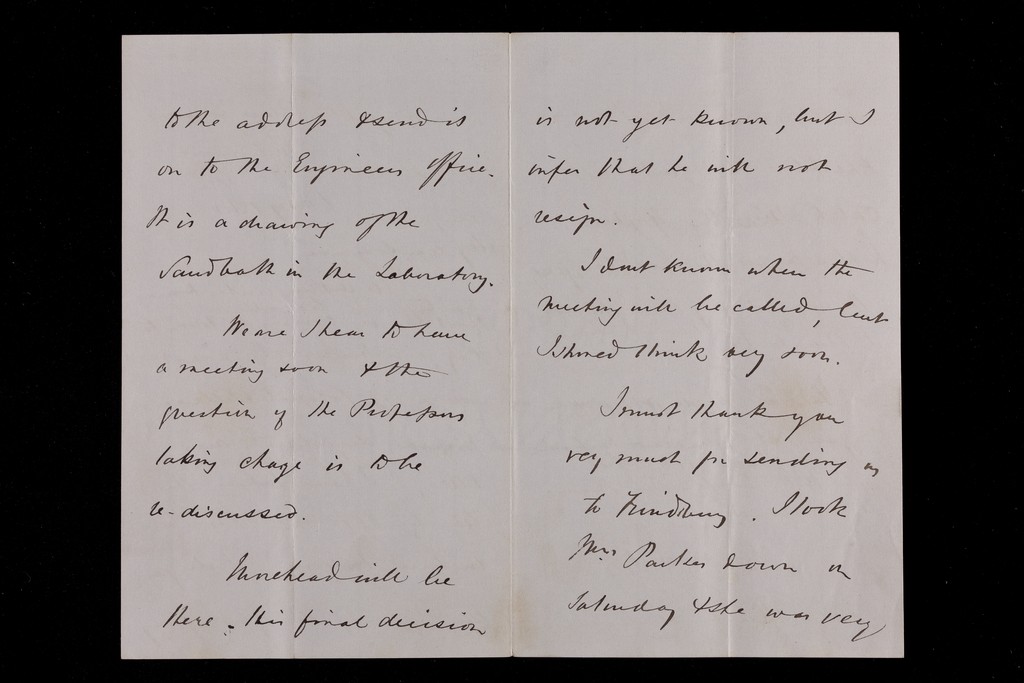 to the address & send it
on to the Engineers Office.
It is a drawing of the
Sandbath in the Laboratory.
We are I hear to have
a meeting soon & the
question of the Professors
taking charge is to be
re-discussed.
Morehead will be
there. His final decision
is not yet known, but I
infer that he will not
resign.
I dont know when the
meeting will be called, but
I should think very soon.
I must thank you
very much for sending us
to . I took
Mrs Parker down on
Saturday & she was very